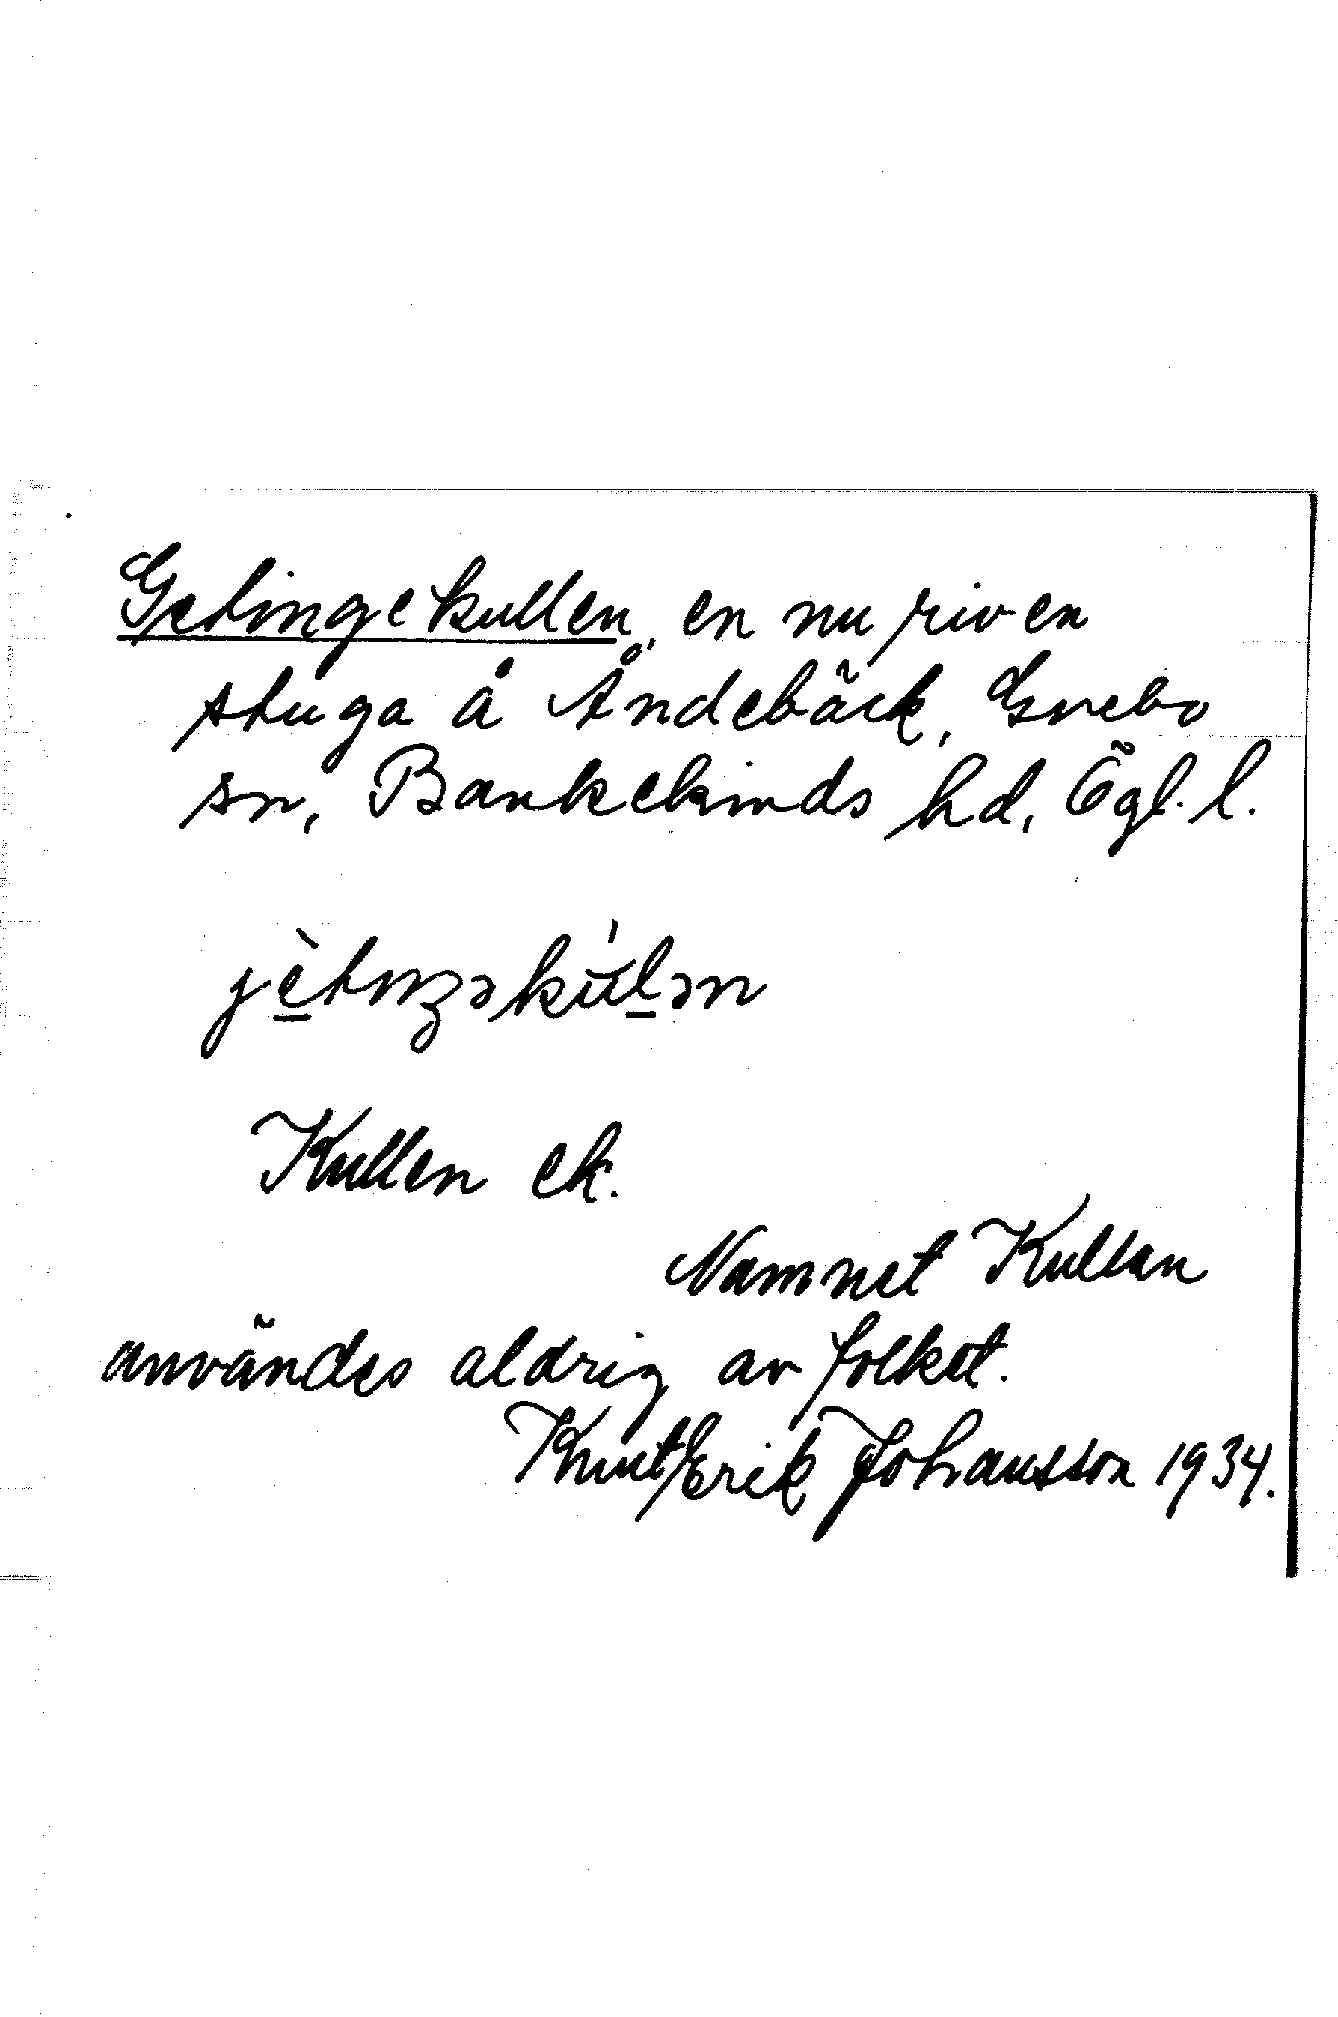 Getingekullen, en nu riven
stuga å Åndebäck, Grebo
sn, Bankekinds hd, Ögl. l.
Kullen ek.
Namnet Kullen
användes aldrig av folket.
Knut Erik Johansson 1934.